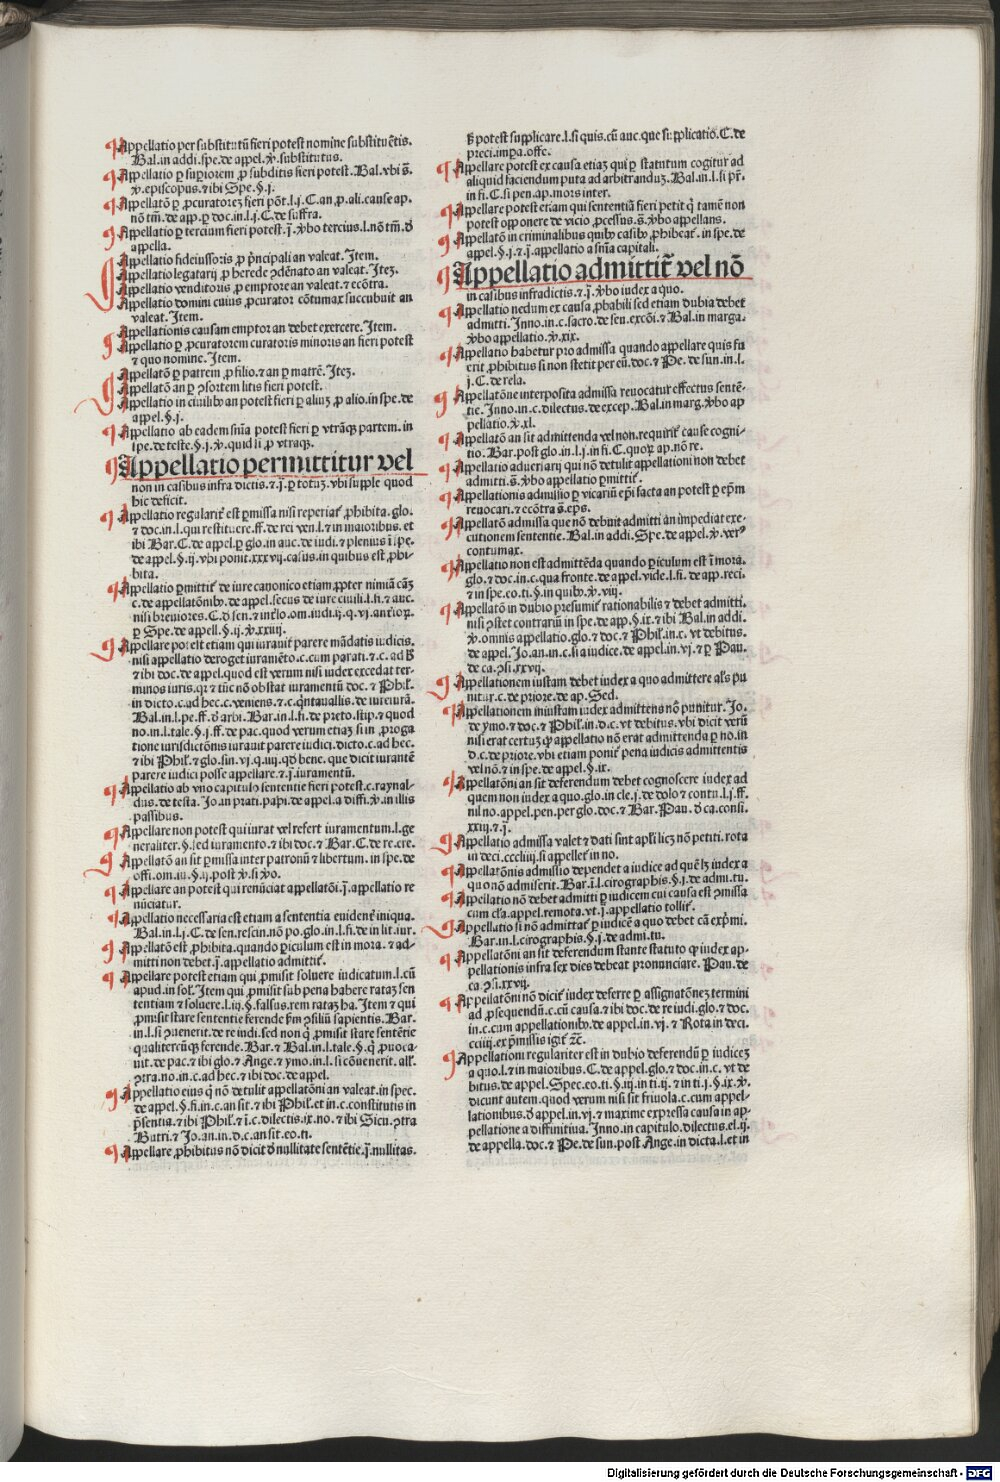 Appellatio per substitutū fieri potest nomine substituētis.
Bal. in addi. spe. de appel. ꝟ. substitutus.
Appellatio ꝑ supiorem ꝓ subditis fieri potest. Bal. vbi s̄.
ꝟ. episcopus. ⁊ ibi Spe. §. j.
Appellatō ꝑ ꝓcuratorez fieri pōt. l. j. C. an. ꝓ. ali. cause ap.
nō tm̄. de app. ꝑ doc. in. l. j. C. de suffra.
Appellatio ꝑ tercium fieri potest. j̄. ꝟbo tercius. l. nō tm̄. ꝺ̄
appella.
Appellatio fideiussoris ꝓ p̄ncipali an valeat. Item.
Appellatio legatarij ꝓ herede ꝯdēnato an valeat. Itez.
Appellatio venditoris ꝓ emptore an valeat. ⁊ ecōtra.
Appellatio domini cuius ꝓcurator cōtumax succubuit an
valeat. Item.
Appellationis causam emptor an debet exercere. Item.
Appellatio ꝑ ꝓcuratorem curatoris minoris an fieri potest
⁊ quo nomine. Item.
Appellatō ꝑ patrem ꝓ filio. ⁊ an ꝑ matrē. Itez.
Appellatō an ꝑ ꝯsortem litis fieri potest.
Appellatio in ciuilibꝰ an potest fieri ꝑ aliuz ꝓ alio. in spe. de
appel. §. j.
Appellatio ab eadem sn̄ia potest fieri ꝑ vtrāqꝫ partem. in
spe. de teste. §. j. ꝟ. quid si ꝓ vtraqꝫ.
Appellatio permittitur vel
non in casibus infra dictis. ⁊. j̄. ꝑ totuz. vbi supple quod
hic deficit.
Appellatio regularit̄ est ꝑmissa nisi reperiat̄ ꝓhibita. glo.
⁊ doc. in. l. qui restituere. ff. de rei ven. l. ⁊ in maioribus. et
ibi Bar. C. de appel. ꝑ glo. in auc. de iudi. ⁊ plenius ī spe.
de appel. §. ij. vbi ponit. xxxvij. casus. in quibus est ꝓhi-
bita.
Appellatio ꝑmittit̄ de iure canonico etiam ꝓpter nimiā cāz
c. de appellatōnibꝰ. de appel. secus de iure ciuili. l. fi. ⁊ auc.
nisi breuiores. C. ꝺ sen. ⁊ inꝉlo. om. iudi. ij. q. vj. anteriorꝫ.
ꝑ Spe. de appell. §. ij. ꝟ. xxiiij.
Appellare potest etiam qui iurauit parere mādatis iudicis.
nisi appellatio deroget iuramēto. c. cum parati. ⁊ c. ad hec
⁊ ibi doc. de appel. quod est verum nisi iudex excedat ter-
minos iuris. qꝛ ⁊ tūc nō obstat iuramentū doc. ⁊ Phil̄.
in dicto. c. ad hec. c. veniens. ⁊ c. qn̄tauallis. de iureiurā.
Bal. in. l. pe. ff. ꝺ̄ arbi. Bar. in. l. fi. de preto. stip. ⁊ quod
no. in. l. tale. §. j. ff. de pac. quod verum etiaz si in ꝓroga
tione iurisdictōnis iurauit parere iudici. dicto. c. ad hec.
⁊ ibi Phil̄. ⁊ glo. sin. vj. q. iiij. qd̄ bene. que dicit iurantē
parere iudici posse appellare. ⁊. j̄. iuramentū.
Appellatio ab vno capitulo sententie fieri potest. c. raynal-
dus. de testa. Jo. in prati. papi. de appel. a diffi. ꝟ. in illis
passibus.
Appellare non potest qui iurat vel refert iuramentum. l. ge
neraliter. §. sed iuramento. ⁊ ibi doc. ⁊ Bar. C. de re. cre.
Appellatō an sit ꝑmissa inter patronū ⁊ libertum. in spe. de
offi. om. iu. §. ij. post ꝟ. si ꝟo.
Appellare an potest qui renūciat appellatōi. j̄. appellatio re
nūciatur.
Appellatio necessaria est etiam a sententia euident̄ iniqua.
Bal. in. l. j. C. de sen. rescin. nō po. glo. in. l. fi. de in lit. iur.
Appellatō est ꝓhibita. quando ꝑiculum est in mora. ⁊ ad-
mitti non debet. j̄. appellatio admittit̄.
Appellare potest etiam qui ꝓmisit soluere iudicatum. l. cū
apud. in sol̄. Item qui ꝓmisit sub pena habere ratāz sen
tentiam ⁊ soluere. l. iij. §. falsus. rem rataz ha. Item ⁊ qui
ꝓmisit stare sententie ferende ẜm ꝯsiliū sapientis. Bar.
in. l. si ꝯuenerit. de re iudi. sed non q̄ ꝓmisit stare sentētie
qualitercūqꝫ ferende. Bar. ⁊ Bal. in. l. tale. §. q̄ ꝓuoca
uit. de pac. ⁊ ibi glo. ⁊ Ange. ⁊ ymo. in. l. si cōuenerit. all̄.
ꝯtra. no. in. c. ad hec. ⁊ ibi doc. de appel.
Appellatio eius q̄ nō detulit appellatōni an valeat. in spec.
de appel. §. fi. in. c. an sit. ⁊ ibi Phil̄. et in. c. constitutis in
p̄sentia. ⁊ ibi Phil̄. ⁊ ī. c. dilectis. ix. no. ⁊ ibi Sicu. ꝯtra
Butri. ⁊ Jo. an. in d. c. an sit. eo. ti.
Appellare ꝓhibitus nō dicit̄ ꝺ̄ nullitate sentētie. j̄. nullitas.
ẜz potest supplicare. l. si quis. cū auc. que supplicatio. C. de
preci. imꝑa. offe.
Appellare potest ex causa etiaz qui ꝑ statutum cogitur ad
aliquid faciendum puta ad arbitranduz. Bal. in. l. si pr̄.
in fi. C. si pen. ap. mors inter.
Appellare potest etiam qui sententiā fieri petit q̄ tamē non
potest opponere de vicio ꝓcessus. s̄. ꝟbo appellans.
Appellatō in criminalibus quibꝰ casibꝰ ꝓhibeat̄. in spe. de
appel. §. j. ⁊. j̄. appellatio a sn̄ia capitali.
Appellatio admittit̄ vel nō
in casibus infradictis. ⁊. j̄. ꝟbo iudex a quo.
Appellatio nedum ex causa ꝓbabili sed etiam dubia debet
admitti. Inno. in. c. sacro. de sen. excōi. ⁊ Bal. in marga.
ꝟbo appellatio. ꝟ. xix.
Appellatio habetur pro admissa quando appellare quis fu
erit ꝓhibitus si non stetit per eū. doc. ⁊ Pe. de sun. in. l.
j. C. de rela.
Appellatōne interposita admissa reuocatur effectus sentē-
tie. Inno. in. c. dilectus. de excep. Bal. in marg. ꝟbo ap
pellatio. ꝟ. xl.
Appellatō an sit admittenda vel non. requirit̄ cause cogni-
tio. Bar. post glo. in. l. j. in fi. C. quorꝫ ap. nō re.
Appellatio aduersarij qui nō detulit appellationi non debet
admitti. s̄. ꝟbo appellatio ꝑmittit̄.
Appellationis admissio ꝑ vicariū ep̄i facta an potest ꝑ ep̄m
reuocari. ⁊ ecōtra s̄. ep̄s.
Appellatō admissa que nō debuit admitti an impediat exe-
cutionem sententie. Bal. in addi. Spe. de appel. ꝟ. versꝰ
contumax.
Appellatio non est admittēda quando ꝑiculum est ī mora.
glo. ⁊ doc. in. c. qua fronte. de appel. vide. l. fi. de app. reci.
⁊ in spe. eo. ti. §. in quibꝰ. ꝟ. viij.
Appellatō in dubio presumit̄ rationabilis ⁊ debet admitti.
nisi ꝯstet contrariū in spe. de app. §. ix. ⁊ ibi Bal. in addi.
ꝟ. omnis appellatio. glo. ⁊ doc. ⁊ Phil̄. in. c. vt debitus.
de appel. Jo. an. in. c. si a iudice. de appel. in. vj. ⁊ ꝑ Pau.
de ca. ꝯsi. xxvij.
Appellationem iustam debet iudex a quo admittere al̄s pu
nitur. c. de priore. de ap. Sed.
Appellationem iniustam iudex admittens nō punitur. Jo.
de ymo. ⁊ doc. ⁊ Phil̄. in. d. c. vt debitus. vbi dicit verū
nisi erat certuz ꝙ appellatio nō erat admittenda ꝑ no. in
d. c. de priore. vbi etiam ponit̄ pena iudicis admittentis
vel nō. ⁊ in spe. de appel. §. ix.
Appellatōni an sit deferendum debet cognoscere iudex ad
quem non iudex a quo. glo. in cle. j. de dolo ⁊ contu. l. j. ff.
nil no. appel. pen. per glo. doc. ⁊ Bar. Pau. ꝺ ca. consi.
xxiij. ⁊. j̄.
Appellatio admissa valet ⁊ dati sint apl̄i licz nō petiti. rota
in deci. ccccliiij. si appellet̄ in no.
Appellatōnis admissio dependet a iudice ad quē lz iudex a
quo nō admiserit. Bar. ī. l. cirographis. §. j. de admi. tu.
Appellatio nō debet admitti ꝑ iudicem cui causa est ꝯmissa
cum cl̄a. appel. remota. vt. j̄. appellatio tollit̄.
Appellatio si nō admittat̄ ꝑ iudicē a quo debet cā exp̄mi.
Bar. in. l. cirographis. §. j. de admi. tu.
Appellatōni an sit deferendum stante statuto ꝙ iudex ap-
pellationis infra sex dies debeat pronunciare. Pau. de
ca. ꝯsi. xxvij.
Appellatōni nō dicit̄ iudex deferre ꝑ assignatōnez termini
ad ꝓsequendū. c. cū causa. ⁊ ibi doc. de re iudi. glo. ⁊ doc.
in. c. cum appellationibꝰ. de appel. in. vj. ⁊ Rota in deci.
cciiij. ex p̄missis igit̄ ⁊c̄.
Appellationi regulariter est in dubio deferendū ꝑ iudicez
a quo. l. ⁊ in maioribus. C. de appel. glo. ⁊ doc. in. c. vt de
bitus. de appel. Spec. eo. ti. §. iij. in ti. ij. ⁊ in ti. j. §. ix. ꝟ.
dicunt autem. quod verum nisi sit friuola. c. cum appel-
lationibus. ꝺ̄ appel. in. vj. ⁊ maxime expressa causa in ap-
pellatione a diffinitiua. Inno. in capitulo. dilectus. el. ij.
de appella. doc. ⁊ Pe. de sun. post Ange. in dicta. l. et in
Digitalisierung gefördert durch die Deutsche Forschungsgemeinschaft - DFG